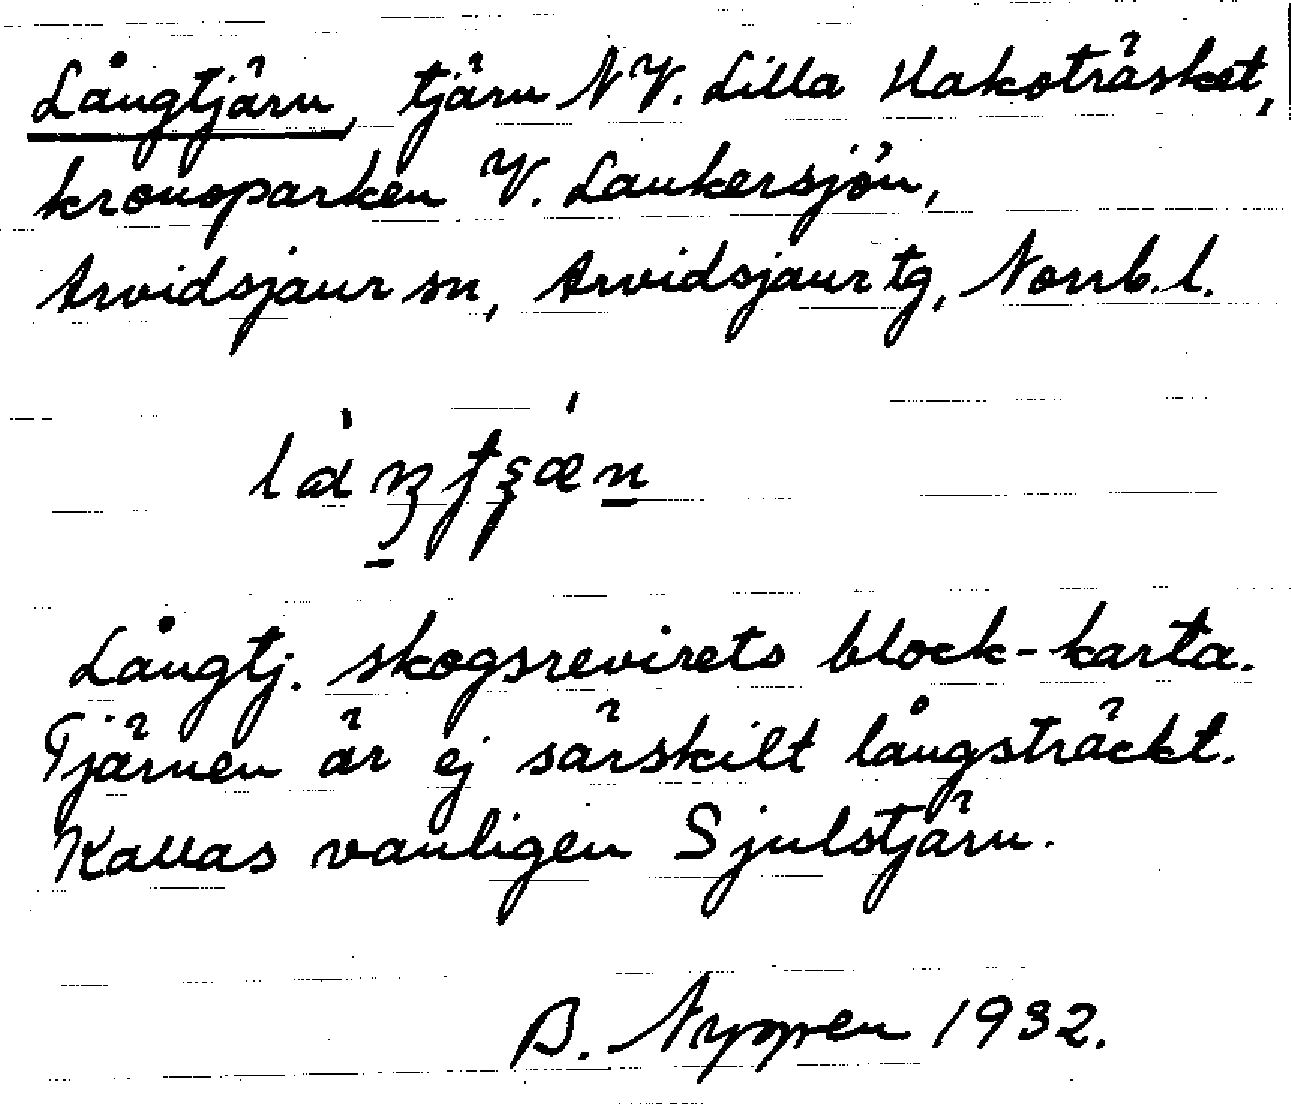 Långtjärn, tjärn NV. Lilla Hakoträsket,
kronoparken V. Lankersjön,
Arvidsjaur sn, Arvidsjaur tg, Norrb.l.
Långtj. skogsrevirets block-karta.
Tjärnen är ej särskilt långsträckt.
Kallas vanligen Sjulstjärn.
B. 1932.